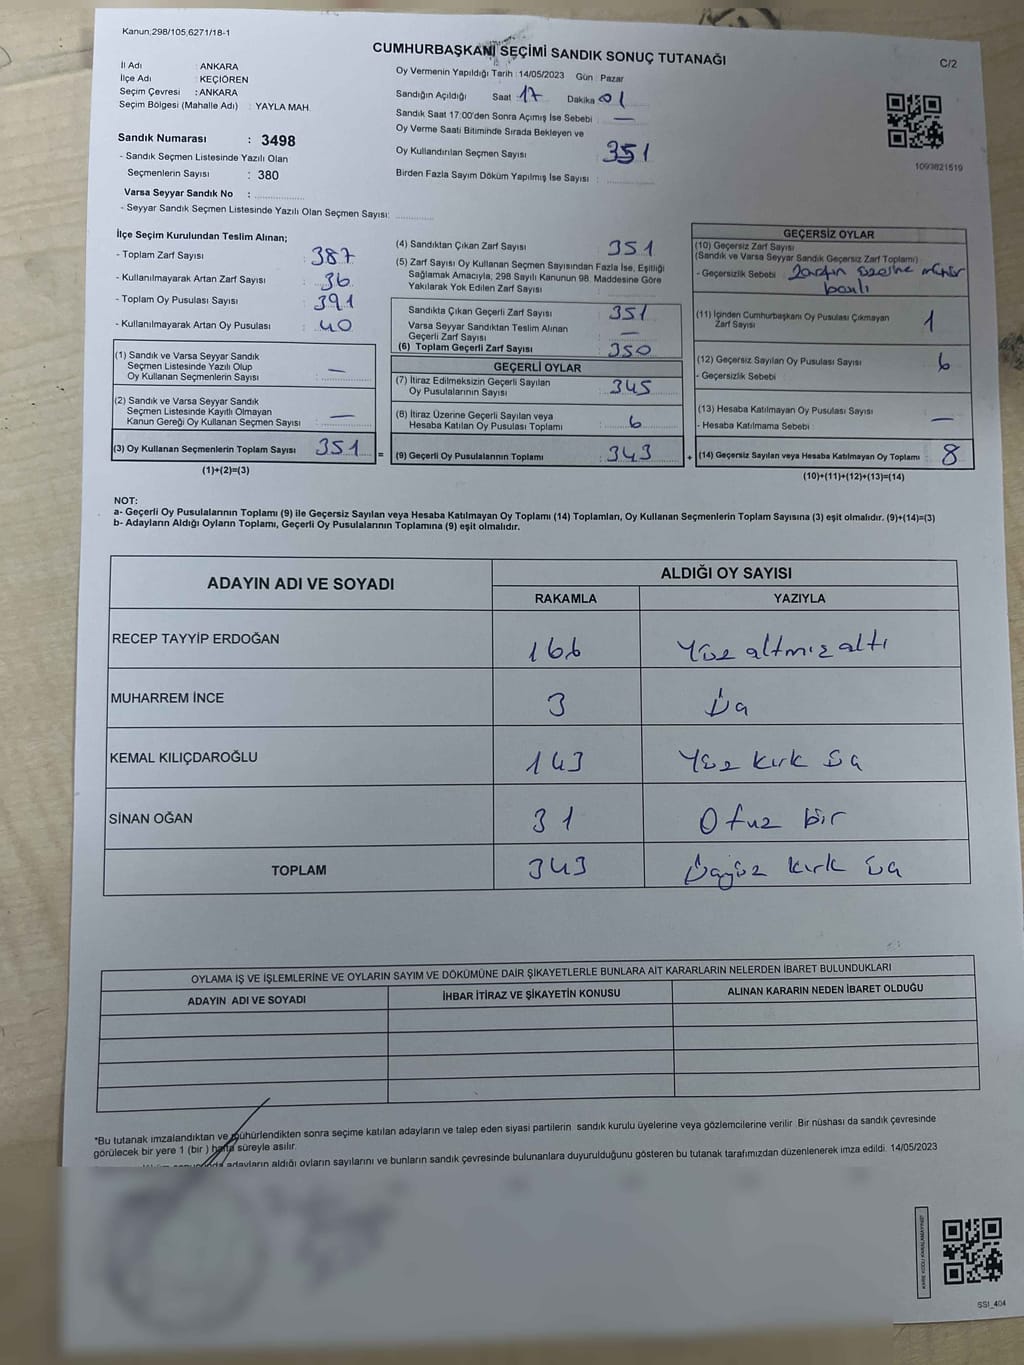 Kanun;298/105,6271/18-1
CUMHURBAŞKANI SEÇİMİ SANDIK SONUÇ TUTANAĞI
C/2
İl Adı : ANKARA
İlçe Adı : KEÇİÖREN
Seçim Çevresi : ANKARA
Seçim Bölgesi (Mahalle Adı) : YAYLA MAH.
Sandık Numarası : 3498
- Sandık Seçmen Listesinde Yazılı Olan
Seçmenlerin Sayısı : 380
Varsa Seyyar Sandık No :
- Seyyar Sandık Seçmen Listesinde Yazılı Olan Seçmen Sayısı:
Oy Vermenin Yapıldığı Tarih : 14/05/2023 Gün : Pazar
Sandığın Açıldığı Saat 17 Dakika 01
Sandık Saat 17:00'den Sonra Açımış İse Sebebi : —
Oy Verme Saati Bitiminde Sırada Bekleyen ve
Oy Kullandırılan Seçmen Sayısı 351
Birden Fazla Sayım Döküm Yapılmış İse Sayısı :
1093621519
İlçe Seçim Kurulundan Teslim Alınan;
- Toplam Zarf Sayısı : 387
- Kullanılmayarak Artan Zarf Sayısı : 36
- Toplam Oy Pusulası Sayısı : 391
- Kullanılmayarak Artan Oy Pusulası : 40
(1) Sandık ve Varsa Seyyar Sandık
Seçmen Listesinde Yazılı Olup
Oy Kullanan Seçmenlerin Sayısı : —
(2) Sandık ve Varsa Seyyar Sandık
Seçmen Listesinde Kayıtlı Olmayan
Kanun Gereği Oy Kullanan Seçmen Sayısı : —
(3) Oy Kullanan Seçmenlerin Toplam Sayısı : 351 =
(1)+(2)=(3)
(4) Sandıktan Çıkan Zarf Sayısı : 351
(5) Zarf Sayısı Oy Kullanan Seçmen Sayısından Fazla İse, Eşitliği
Sağlamak Amacıyla, 298 Sayılı Kanunun 98. Maddesine Göre
Yakılarak Yok Edilen Zarf Sayısı :
Sandıkta Çıkan Geçerli Zarf Sayısı : 351
Varsa Seyyar Sandıktan Teslim Alınan
Geçerli Zarf Sayısı : —
(6) Toplam Geçerli Zarf Sayısı : 350
GEÇERLİ OYLAR
(7) İtiraz Edilmeksizin Geçerli Sayılan
Oy Pusulalarının Sayısı : 345
(8) İtiraz Üzerine Geçerli Sayılan veya
Hesaba Katılan Oy Pusulası Toplamı : 6
(9) Geçerli Oy Pusulalarının Toplamı : 343 +
GEÇERSİZ OYLAR
(10) Geçersiz Zarf Sayısı
(Sandık ve Varsa Seyyar Sandık Geçersiz Zarf Toplamı)
- Geçersizlik Sebebi : Zarfın üzerine mühür
(11) İçinden Cumhurbaşkanı Oy Pusulası Çıkmayan
Zarf Sayısı 1
(12) Geçersiz Sayılan Oy Pusulası Sayısı : 6
- Geçersizlik Sebebi
(13) Hesaba Katılmayan Oy Pusulası Sayısı : —
- Hesaba Katılmama Sebebi :
(14) Geçersiz Sayılan veya Hesaba Katılmayan Oy Toplamı : 8
(10)+(11)+(12)+(13)=(14)
NOT:
a- Geçerli Oy Pusulalarının Toplamı (9) ile Geçersiz Sayılan veya Hesaba Katılmayan Oy Toplamı (14) Toplamları, Oy Kullanan Seçmenlerin Toplam Sayısına (3) eşit olmalıdır. (9)+(14)=(3)
b- Adayların Aldığı Oyların Toplamı, Geçerli Oy Pusulalarının Toplamına (9) eşit olmalıdır.
ADAYIN ADI VE SOYADI ALDIĞI OY SAYISI
RAKAMLA YAZIYLA
RECEP TAYYİP ERDOĞAN 166 Yüz altmış altı
MUHARREM İNCE 3 Üç
KEMAL KILIÇDAROĞLU 143 Yüz kırk üç
SİNAN OĞAN 31 Otuz bir
TOPLAM 343 Üçyüz kırk üç
OYLAMA İŞ VE İŞLEMLERİNE VE OYLARIN SAYIM VE DÖKÜMÜNE DAİR ŞİKAYETLERLE BUNLARA AİT KARARLARIN NELERDEN İBARET BULUNDUKLARI
ADAYIN ADI VE SOYADI İHBAR İTİRAZ VE ŞİKAYETİN KONUSU ALINAN KARARIN NEDEN İBARET OLDUĞU
*Bu tutanak imzalandıktan ve mühürlendikten sonra seçime katılan adayların ve talep eden siyasi partilerin sandık kurulu üyelerine veya gözlemcilerine verilir. Bir nüshası da sandık çevresinde
görülecek bir yere 1 (bir ) hafta süreyle asılır.
adayların aldığı oyların sayılarını ve bunların sandık çevresinde bulunanlara duyurulduğunu gösteren bu tutanak tarafımızdan düzenlenerek imza edildi. 14/05/2023
KARE KODU KARALAMAYINIZ!
SSI_404